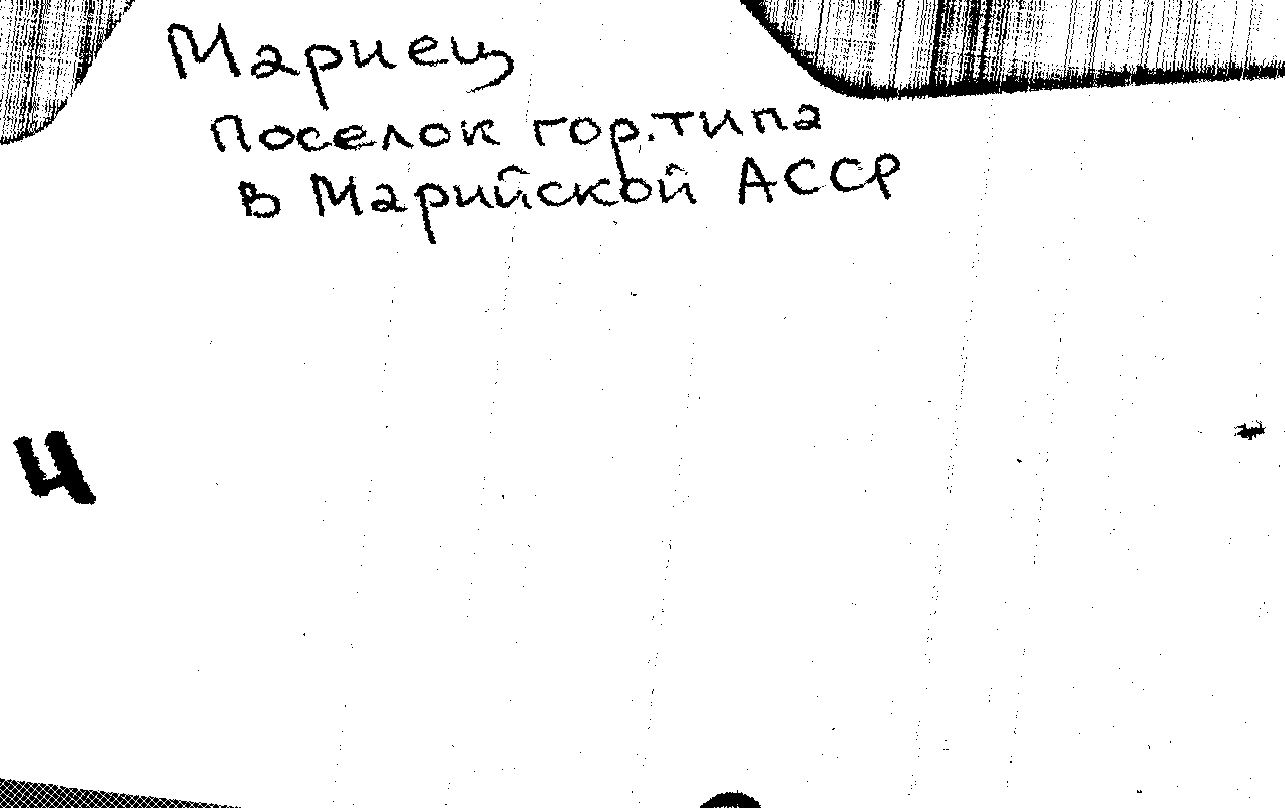 Мариец
поселок гор. типа
в Марийской АССР